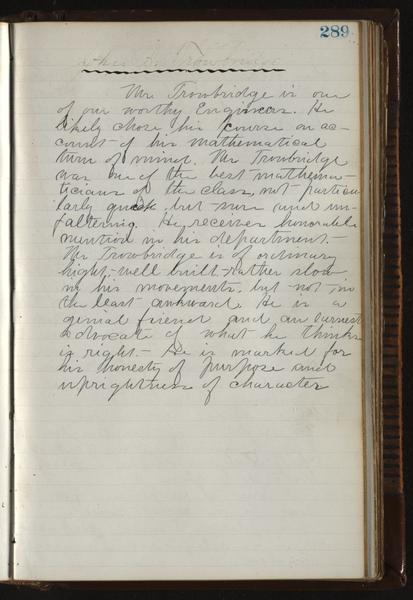 289
Trowbridge
Mr Trowbridge is one
of our worthy Engineers. He
likely chose his course on ac-
count of his mathematical
turn of mind. Mr Trowbridge
was one of the best mathema-
ticians of the class, not particu-
larly quick but sure and un-
faltering. He receives honorable
mention in his department.-
Mr Trowbridge is of ordinary
hight, well built, rather slow
in his movements, but not in
the least awkward. He is a
genial friend and an earnest
advocate of what he thinks
is right.- He is marked for
his honesty of purpose and
uprightness of character